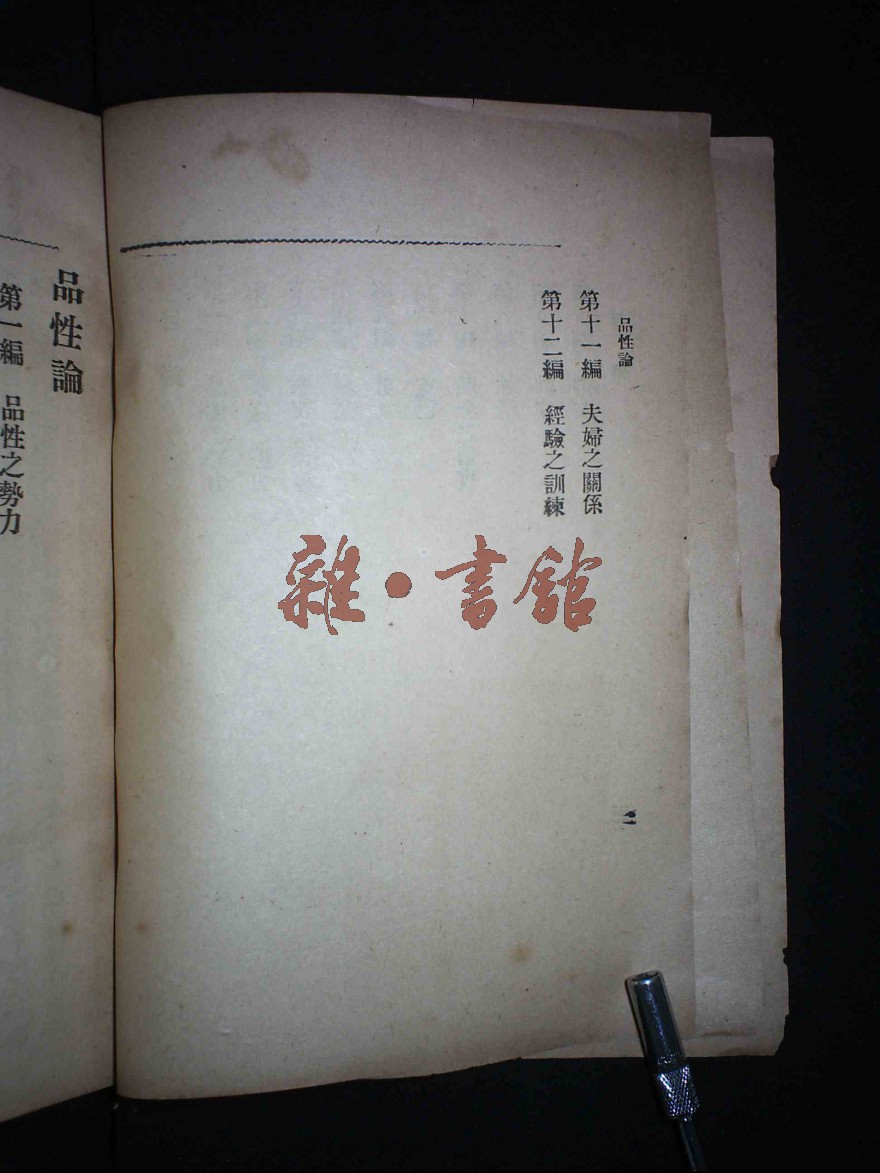 品性論
第十一編　夫婦之關係
第十二編　經驗之訓練
二
雜•書館
品性論
第一編　品性之勢力